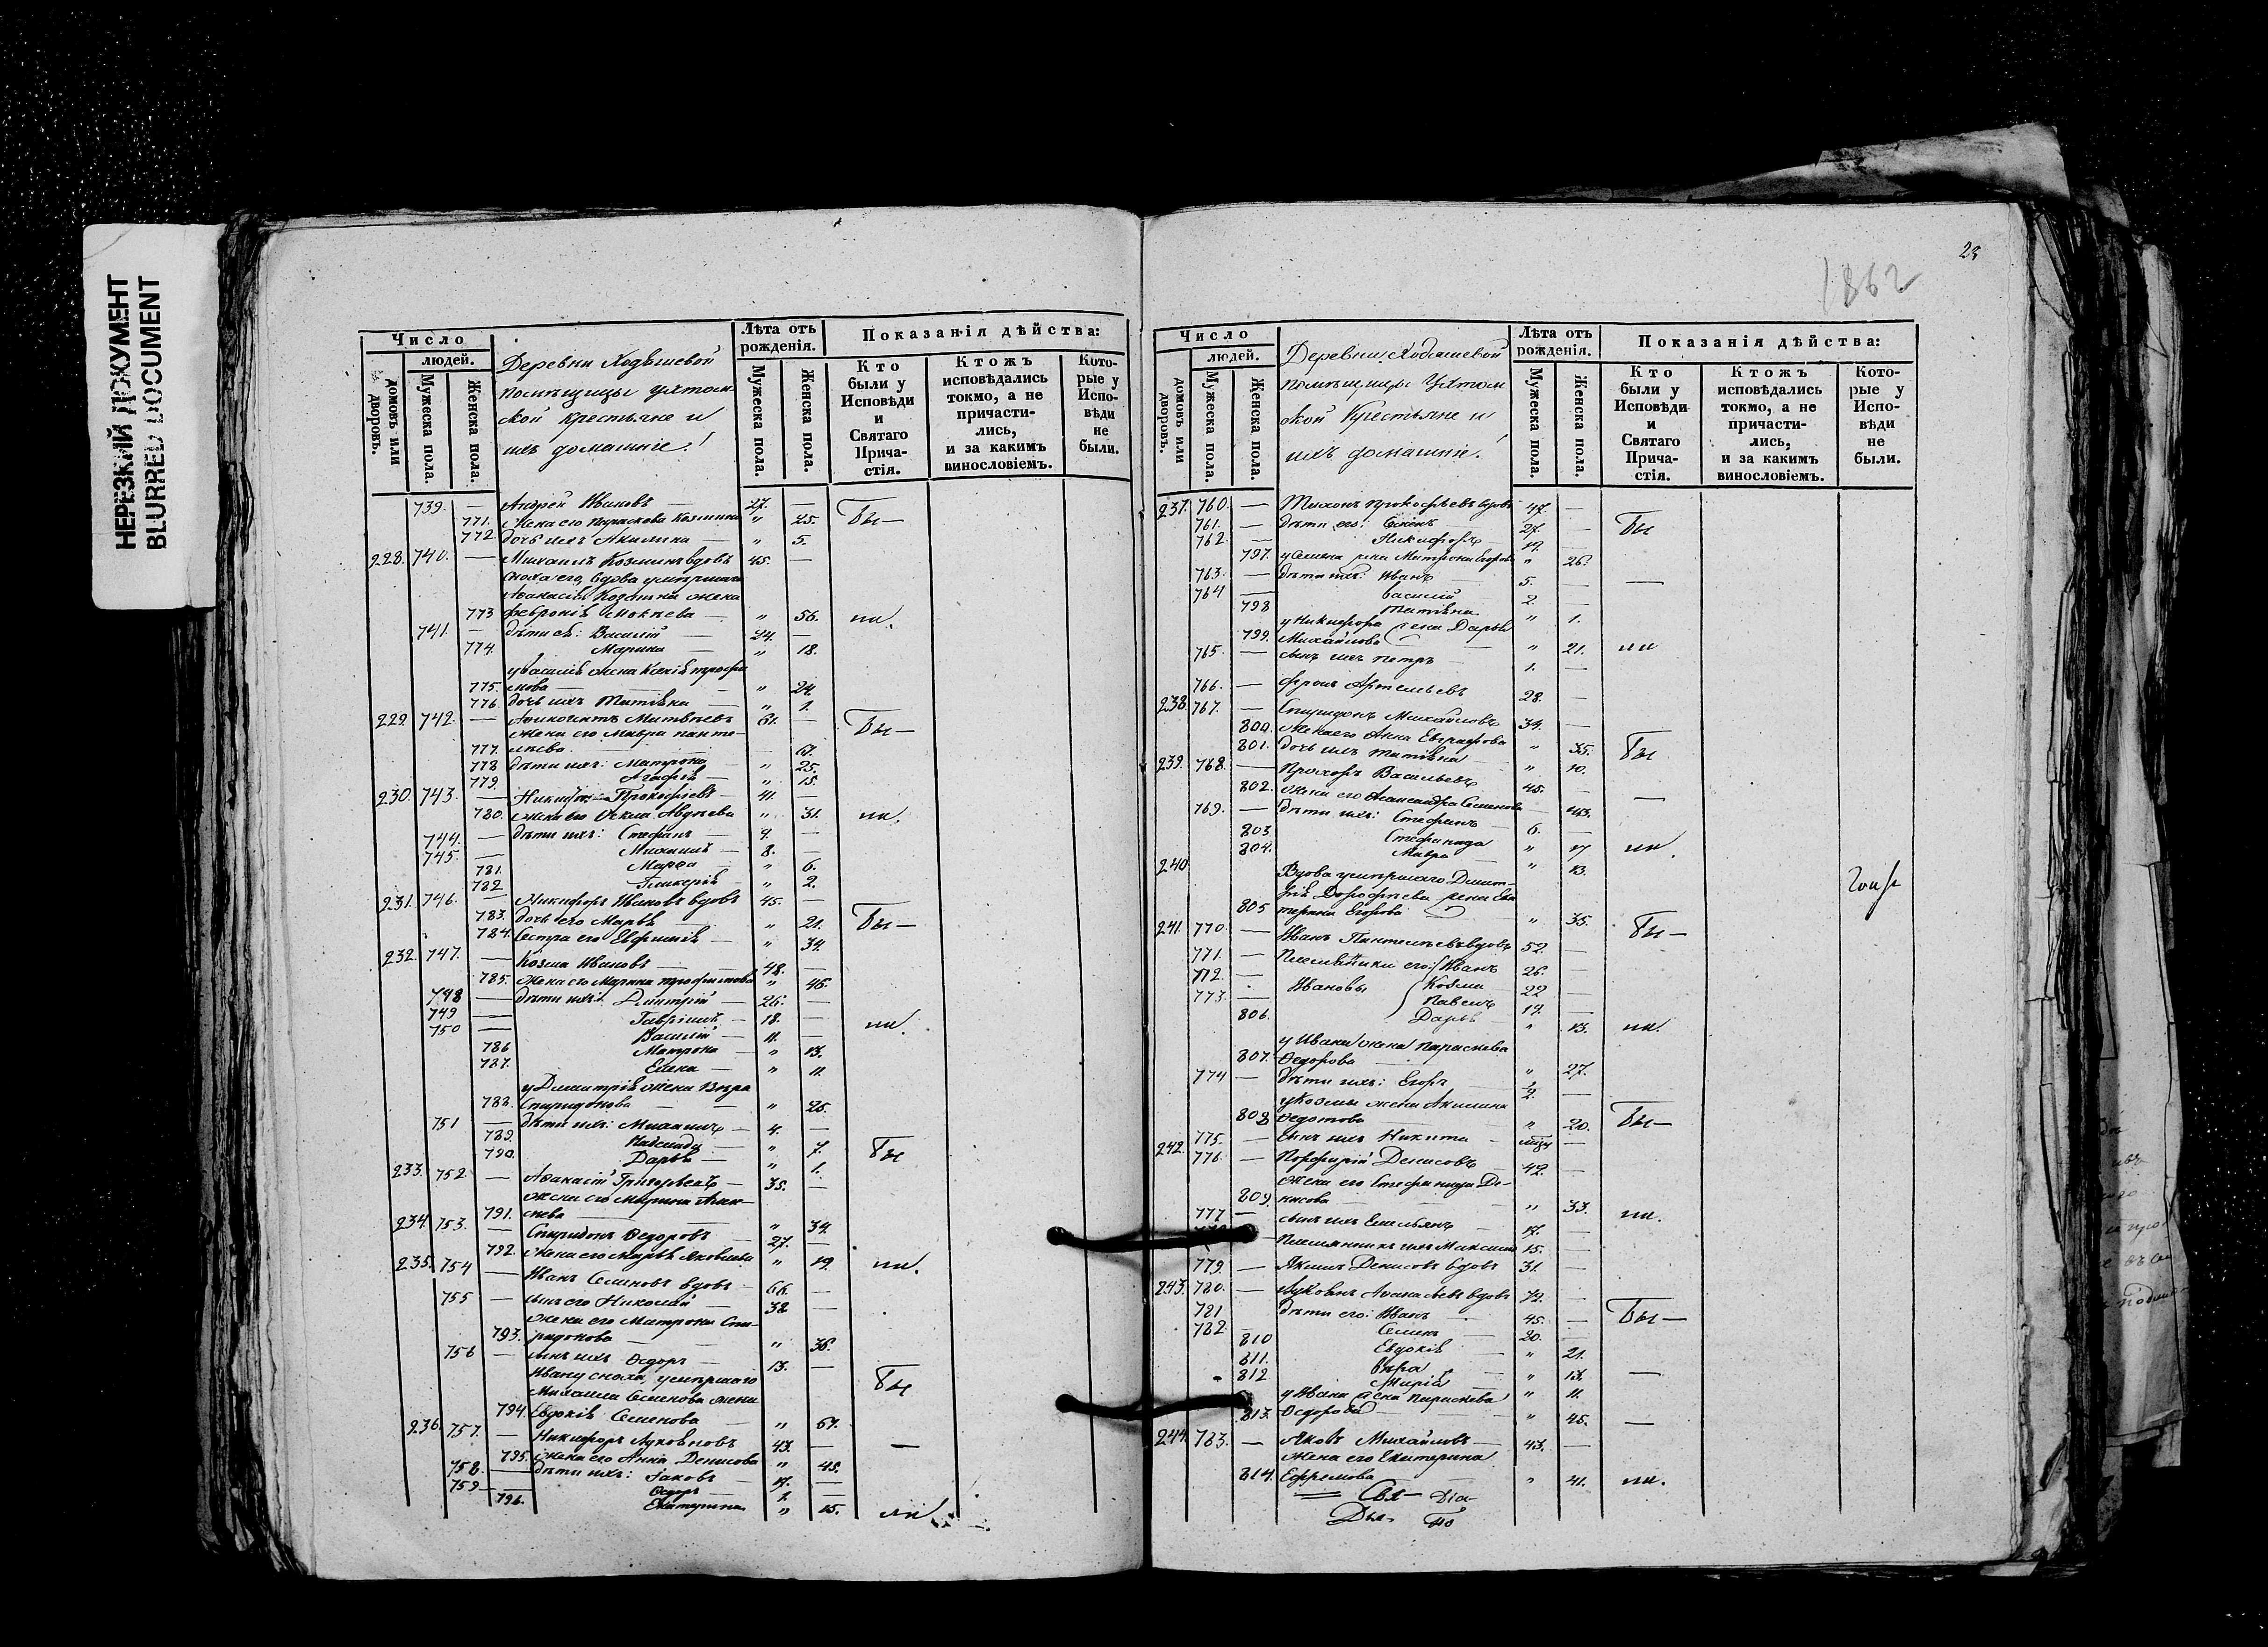 НЕРЕЗКИЙ ДОКУМЕНТ
BLURRED DOCUMENT
Число
людей.
домовъ или дворовъ.
Мужеска пола.
Женска пола.
помѣщицы Ухтом-
ской крестьяне и
ихъ домашніе!
Лѣта отъ рожденія.
Мужеска пола.
Женска пола.
Показанія дѣйства:
Кто были у Исповѣди и Святаго Прича-стія.
Ктожъ исповѣдались токмо, а не причасти-лись, и за какимъ винословіемъ.
Кото-рые у Испо-вѣди не были.
739. — Андрей Ивановъ — 27. — Бы—
771. Жена его Параскова Козмина " 25.
772. дочь ихъ Акилина — " 5.
228. 740. — Михаилъ Козминъ вдовъ 45. —
сноха его, вдова умершаго
Аѳанасія Козмина жена
773 Февронія — " 56. ли.
741. — дѣти еѣ: Василій — 24. —
774. Марина — " 18.
у Василія жена Ксенія Трофи
775. мова — " 24.
776. дочь ихъ Татіяна — " 1.
229. 742. — Матвѣевъ 61. — Бы—
жена его Мавра Панте-
777. лѣева — 61.
778 дѣти ихъ: Матрона — " 25.
779. Агафія — " 15.
230. 743. — Никифоръ Прокофьевъ — 41. —
780. жена его Ѳекла Авдѣева " 31. ли.
744. — дѣти ихъ: Стефанъ — 9. —
745. — Михаилъ — 8. —
781. Марѳа — " 6.
782 Гликерія — " 2.
231. 746. — Никифоръ Ивановъ вдовъ 45. —
783. дочь его Марья — " 21. Бы—
784. Сестра его Евфимія — " 34.
232. 747. — Козма Ивановъ — 48. —
785. Жена его Марина Трофимова " 46.
748 — дѣти ихъ: Дмитрій — 26. —
749 — Гавріилъ — 18. — ли.
750 — Василій — 11. —
786 Матрона — " 13.
787. Елена — " 11.
у Димитрія жена Вѣра
788. Спиридонова — " 25.
751 — дѣти ихъ: Михаилъ — 4. —
789. " 7. Бы
790. Дарья — " 1.
233. 752 — Аѳанасій Григорьевъ — 35. —
жена его Марина Алек-
791. сѣева — " 34.
234. 753. — Спиридонъ Ѳедоровъ — 27. —
792. Жена его Марья Яковлева " 19. ли.
235. 754 — Иванъ Семеновъ вдовъ — 66. —
755 — сынъ его Николай — 38 —
жена его Матрона Спи-
793. ридонова — " 36.
756 — сынъ ихъ Ѳедоръ — 13. —
Ивану сноха, умершаго
Михаила Семенова жена Бы
794. Евдокія Семенова — " 61.
236. 757. — Никифоръ Лукояновъ 43. — —
795. Жена его Анна Денисова " 45.
758. — дѣти ихъ: Іаковъ — 17. —
759 — Ѳедоръ — 1. —
796. Екатерина " 15. ли.
23
1862
Число
людей.
домовъ или дворовъ.
Мужеска пола.
Женска пола.
Деревни Ходяшевой
помѣщицы Ухтом
ской Крестьяне и
ихъ домашніе!
Лѣта отъ рожденія.
Мужеска пола.
Женска пола.
Показанія дѣйства:
Кто были у Исповѣди и Святаго Прича-стія.
Ктожъ исповѣдались токмо, а не причасти-лись, и за какимъ винословіемъ.
Кото-рые у Испо-вѣди не были.
237. 760. — Тихонъ Прокофьевъ вдовъ 47. —
761. — дѣти его: Семенъ — 27. — Бы
762. — Никифоръ — 19. —
797. у Семена жена Матрона Егорова " 26.
763. — дѣти ихъ: Иванъ — 5. — —
764 — Василій 2. —
798 Татіяна " 1.
у Никифора жена Дарья
799. Михайлова — " 21. ли
765 — сынъ ихъ Петръ 1. —
766. — Артемьевъ 28. —
238. 767. — Спиридонъ Михайловъ 34. —
800. Жена его Анна Евграфова " 35. Бы
801. дочь ихъ Татіяна — " 10.
239. 768. — Прохоръ Васильевъ 45. —
802. Жена его Александра Семенова — 43. —
769. — дѣти ихъ: Стефанъ — 6. —
803. Стефанида " 17 ли.
804. Мавра — " 13.
240 Вдова умершаго Димит-
рія Дорофѣева жена Ека
805 терина Егорова " 35. Бы—
241. 770. — Иванъ Пантелѣевъ вдовъ 52. —
771. — Племянники его: Иванъ 26. —
772. — Ивановы Козма — 22 —
773. — Павелъ 19. —
806. Дарья — " 13. ли.
у Ивана жена Параскева
807. Ѳедорова — " 27.
774 — дѣти ихъ: Егоръ 1/2. —
у Козмы жена Акилина
808 Ѳедотова — " 20. Бы—
775. — сынъ ихъ Никита —
242. 776. — Порфирій Денисовъ 42. —
жена его Стефанида Де-
809. нисова — " 33. ли.
777 — сынъ ихъ Емельянъ 17. —
Племянникъ ихъ Максимъ 15. —
779. — Якимъ Денисовъ вдовъ 31. —
243. 780. — Лукоянъ вдовъ 72. —
781 дѣти его: Иванъ — 45. — Бы—
782 — Семенъ — 20. —
810 Евдокія — " 21.
811. Вѣра — " 13. —
812 Марія — " 11.
у Ивана жена Параскева
813. Ѳедорова — " 45. —
244. 783. — Яковъ Михайловъ — 43. —
Жена его Екатерина
814. Ефремова — " 41. ли.